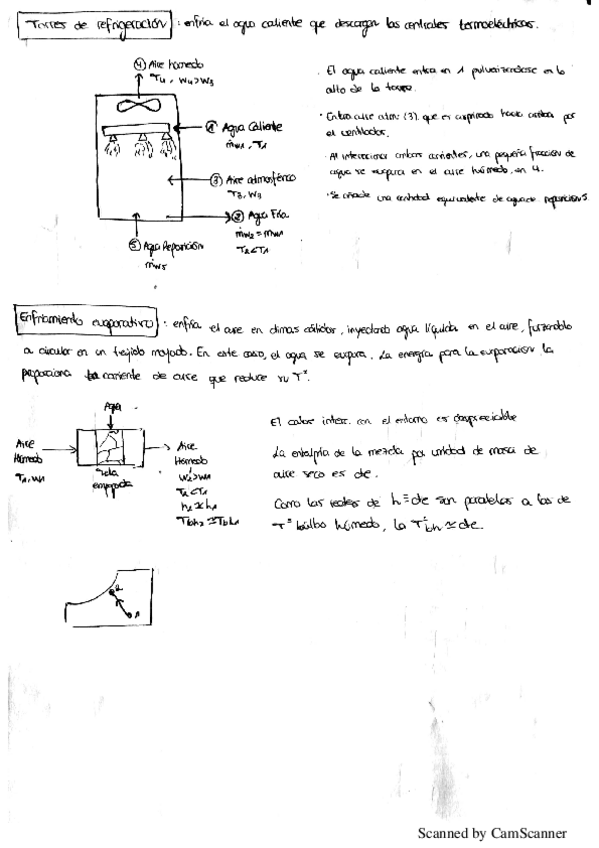 Torres de refrigeración : enfría el agua caliente que descargan las centrales termoeléctricas.
④ Aire húmedo
T4, W4>W3
① Agua Caliente
ṁw1, T1
③ Aire atmosférico
T3, W3
② Agua Fría
ṁw2 = ṁw1
T2<T1
⑤ Agua Reposición
ṁw5
· El agua caliente entra en 1 pulverizándose en lo
alto de la torre.
· Entra aire atm. (3), que es aspirado hacia arriba por
el ventilador.
· Al interaccionar ambas corrientes, una pequeña fracción de
agua se evapora en el aire húmedo, en 4.
· Se añade una cantidad equivalente de agua de reposición 5.
Enfriamiento evaporativo : enfría el aire en climas cálidos, inyectando agua líquida en el aire, forzándolo
a circular en un tejido mojado. En este caso, el agua se evapora. La energía para la evaporación la
proporciona la corriente de aire que reduce su Tª.
Agua
Aire
Húmedo
T1, W1
Tela
empapada
Aire
Húmedo
W2>W1
T2<T1
h2≈h1
Tbh2≈Tbh1
El calor inter. con el entorno es despreciable
La entalpía de la mezcla por unidad de masa de
aire seco es cte.
Como las rectas de h=cte son paralelas a las de
Tª bulbo húmedo, la Tªbh≈cte.
2
1
Scanned by CamScanner